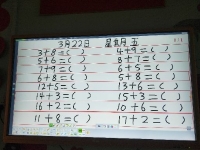 3月22日 星期五
3+8=( ) 4+9=( )
5+6=( ) 8+7=( )
7+9=( ) 6+5=( )
6+8=( ) 5+8=( )
12+5=( ) 13+6=( )
14+3=( ) 15+3=( )
16+2=( ) 10+6=( )
11+8=( ) 17+2=( )